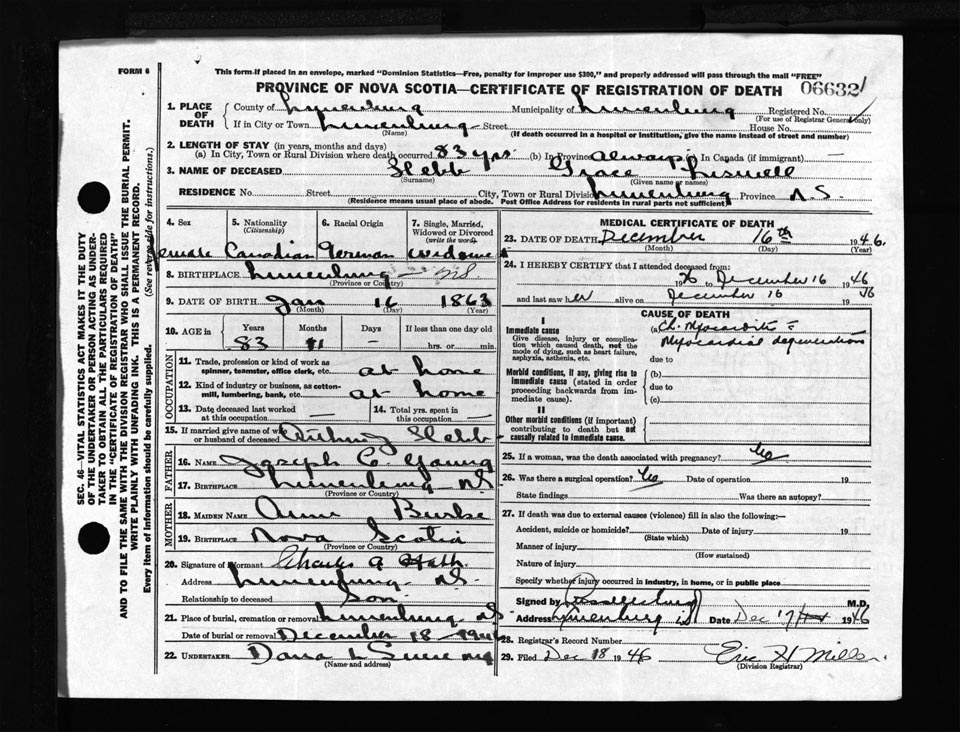 FORM 6
This form if placed in an envelope, marked "Dominion Statistics—Free, penalty for improper use $300," and properly addressed will pass through the mail "FREE"
PROVINCE OF NOVA SCOTIA—CERTIFICATE OF REGISTRATION OF DEATH 06632
1. PLACE OF DEATH County of Lunenburg Municipality of Lunenburg Registered No.
(For use of Registrar General only)
If in City or Town Lunenburg Street House No.
(Name) (If death occurred in a hospital or institution, give the name instead of street and number)
2. LENGTH OF STAY (in years, months and days)
(a) In City, Town or Rural Division where death occurred 83 yrs. (b) In Province Always In Canada (if immigrant) —
3. NAME OF DECEASED Hebb Grace
(Surname) (Given name or names)
RESIDENCE No. Street City, Town or Rural Division Lunenburg Province N.S.
(Residence means usual place of abode. Post Office Address for residents in rural parts not sufficient)
4. Sex 5. Nationality (Citizenship) 6. Racial Origin 7. Single, Married, Widowed or Divorced (write the word)
Female Canadian German widowed
8. BIRTHPLACE Lunenburg — N.S.
(Province or Country)
9. DATE OF BIRTH Jan 16 1863
(Month) (Day) (Year)
10. AGE in Years Months Days If less than one day old
83 11 — hrs. or min.
OCCUPATION
11. Trade, profession or kind of work as spinner, teamster, office clerk, etc. at home
12. Kind of industry or business, as cotton-mill, lumbering, bank, etc. at home
13. Date deceased last worked at this occupation — 14. Total yrs. spent in this occupation —
15. If married give name of wife or husband of deceased Hebb
FATHER
16. NAME Joseph C. Young
17. BIRTHPLACE Lunenburg N.S.
(Province or Country)
MOTHER
18. MAIDEN NAME Ann Burke
19. BIRTHPLACE Nova Scotia
(Province or Country)
20. Signature of Informant Charles A Hebb
Address Lunenburg N.S.
Relationship to deceased Son
21. Place of burial, cremation or removal Lunenburg N.S.
Date of burial or removal December 18 - 1946
22. UNDERTAKER Dana L
(Name and address)
MEDICAL CERTIFICATE OF DEATH
23. DATE OF DEATH December 16th 1946.
(Month) (Day) (Year)
24. I HEREBY CERTIFY that I attended deceased from:
19 to December 16 1946
and last saw her alive on December 16 1946
CAUSE OF DEATH
I
Immediate cause
Give disease, injury or complication which caused death, not the mode of dying, such as heart failure, asphyxia, asthenia, etc.
(a) Ch. Myocarditis
Myocardial degeneration
due to
Morbid conditions, if any, giving rise to immediate cause (stated in order proceeding backwards from immediate cause).
(b)
due to
(c)
II
Other morbid conditions (if important) contributing to death but not causally related to immediate cause.
25. If a woman, was the death associated with pregnancy? No
26. Was there a surgical operation? No Date of operation 19
State findings Was there an autopsy?
27. If death was due to external causes (violence) fill in also the following:—
Accident, suicide or homicide? Date of injury 19
(State which)
Manner of injury
(How sustained)
Nature of injury
Specify whether injury occurred in industry, in home, or in public place
Signed by M.D.
Address Lunenburg N.S. Date Dec 17 1946
28. Registrar's Record Number
29. Filed Dec 18 1946 Eric H Miller
(Division Registrar)
SEC. 46—VITAL STATISTICS ACT MAKES IT THE DUTY
OF THE UNDERTAKER OR PERSON ACTING AS UNDER-
TAKER TO OBTAIN ALL THE PARTICULARS REQUIRED
IN THE "CERTIFICATE OF REGISTRATION OF DEATH"
AND TO FILE THE SAME WITH THE DIVISION REGISTRAR WHO SHALL ISSUE THE BURIAL PERMIT.
WRITE PLAINLY WITH UNFADING INK. THIS IS A PERMANENT RECORD.
Every item of information should be carefully supplied. (See reverse side for instructions.)